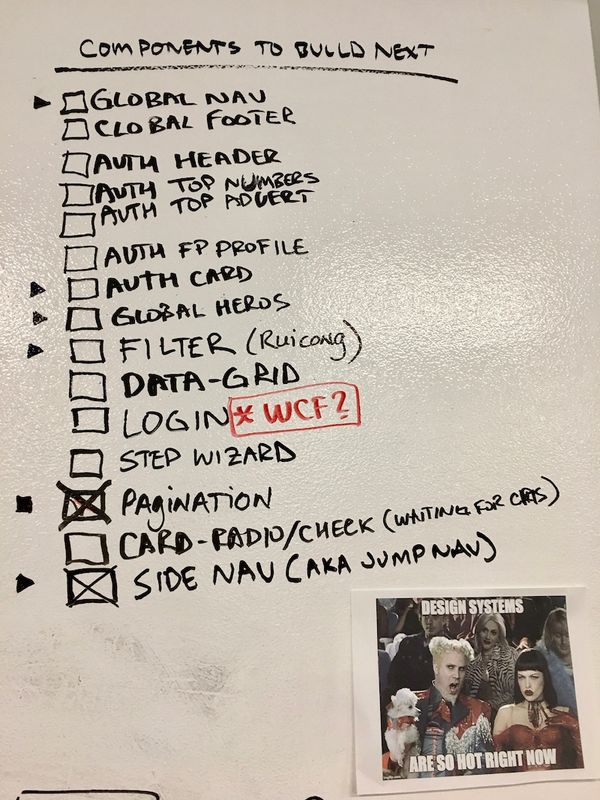 COMPONENTS TO BUILD NEXT
GLOBAL NAV
GLOBAL FOOTER
AUTH HEADER
AUTH TOP NUMBERS
AUTH TOP ADVERT
AUTH FP PROFILE
AUTH CARD
GLOBAL HEROS
FILTER (Ruicong)
DATA-GRID
LOGIN * WCF?
STEP WIZARD
PAgINATION
CARD-RADIO/CHECK (WAITING FOR)
SIDE NAV (AKA JUMP NAV)
DESIGN SYSTEMS
ARE SO HOT RIGHT NOW